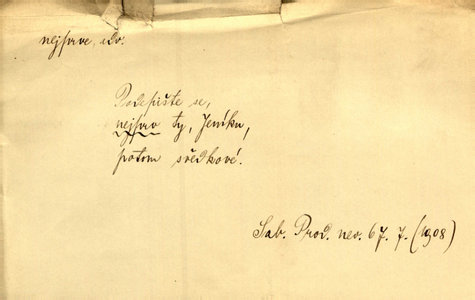 nejprve, adv.
Podepište se,
nejprv ty, Jeníku,
potom svědkové.
Sab. Prod. nev. 67. 7. (1908)